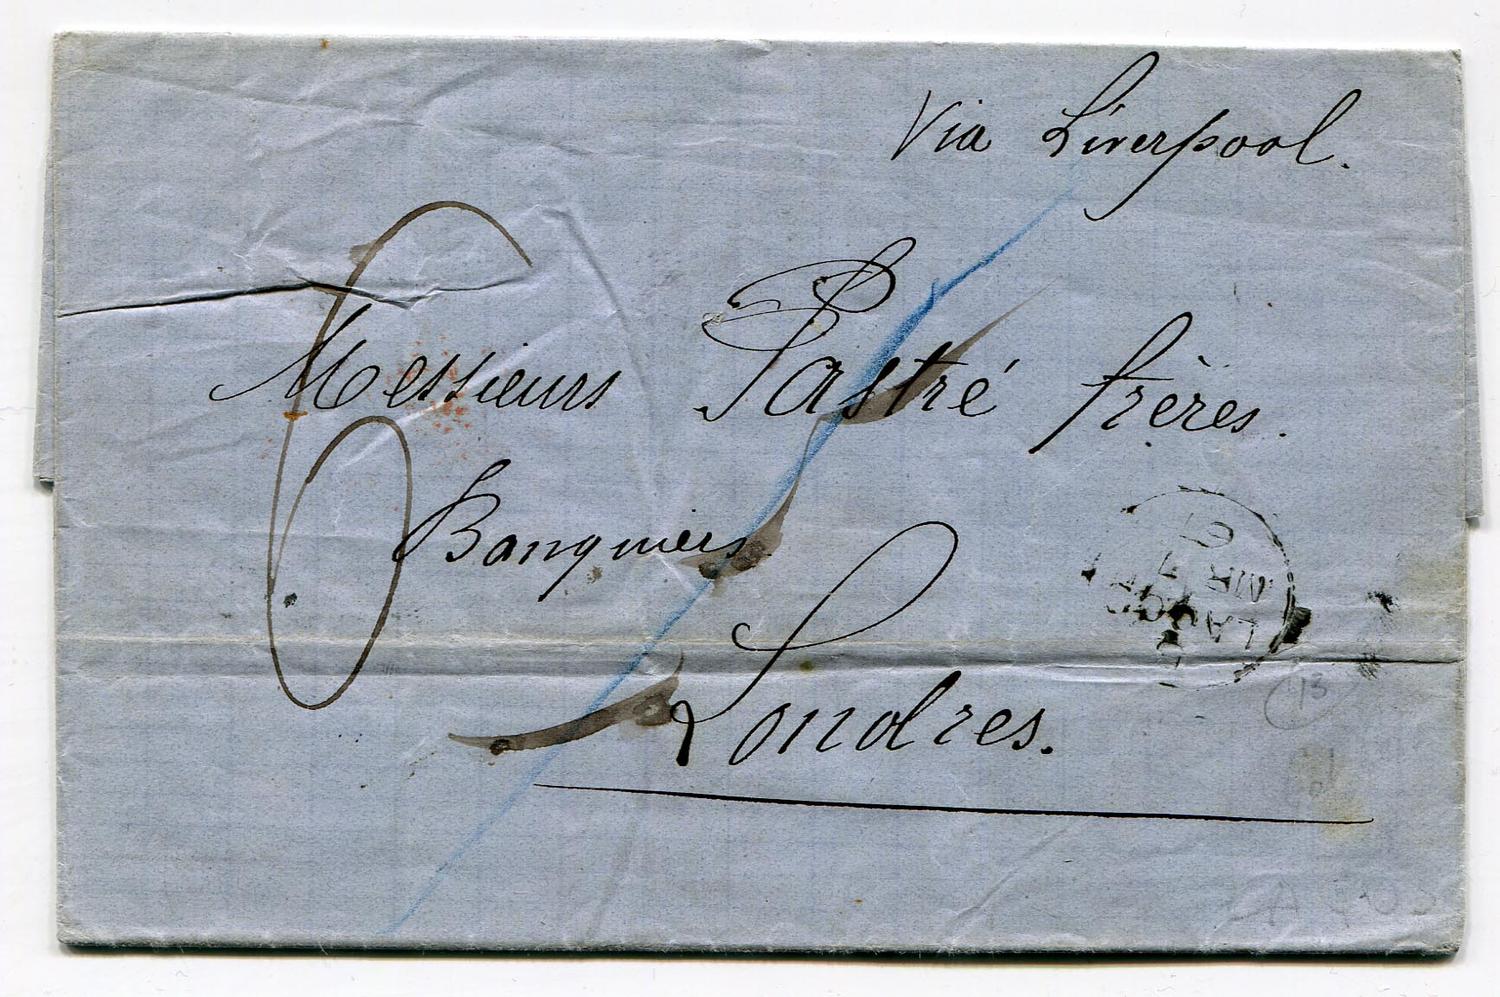 Via Liverpool.
6
Messieurs Pastré frères.
Banquiers
Londres.
LAGOS
MR 7
13